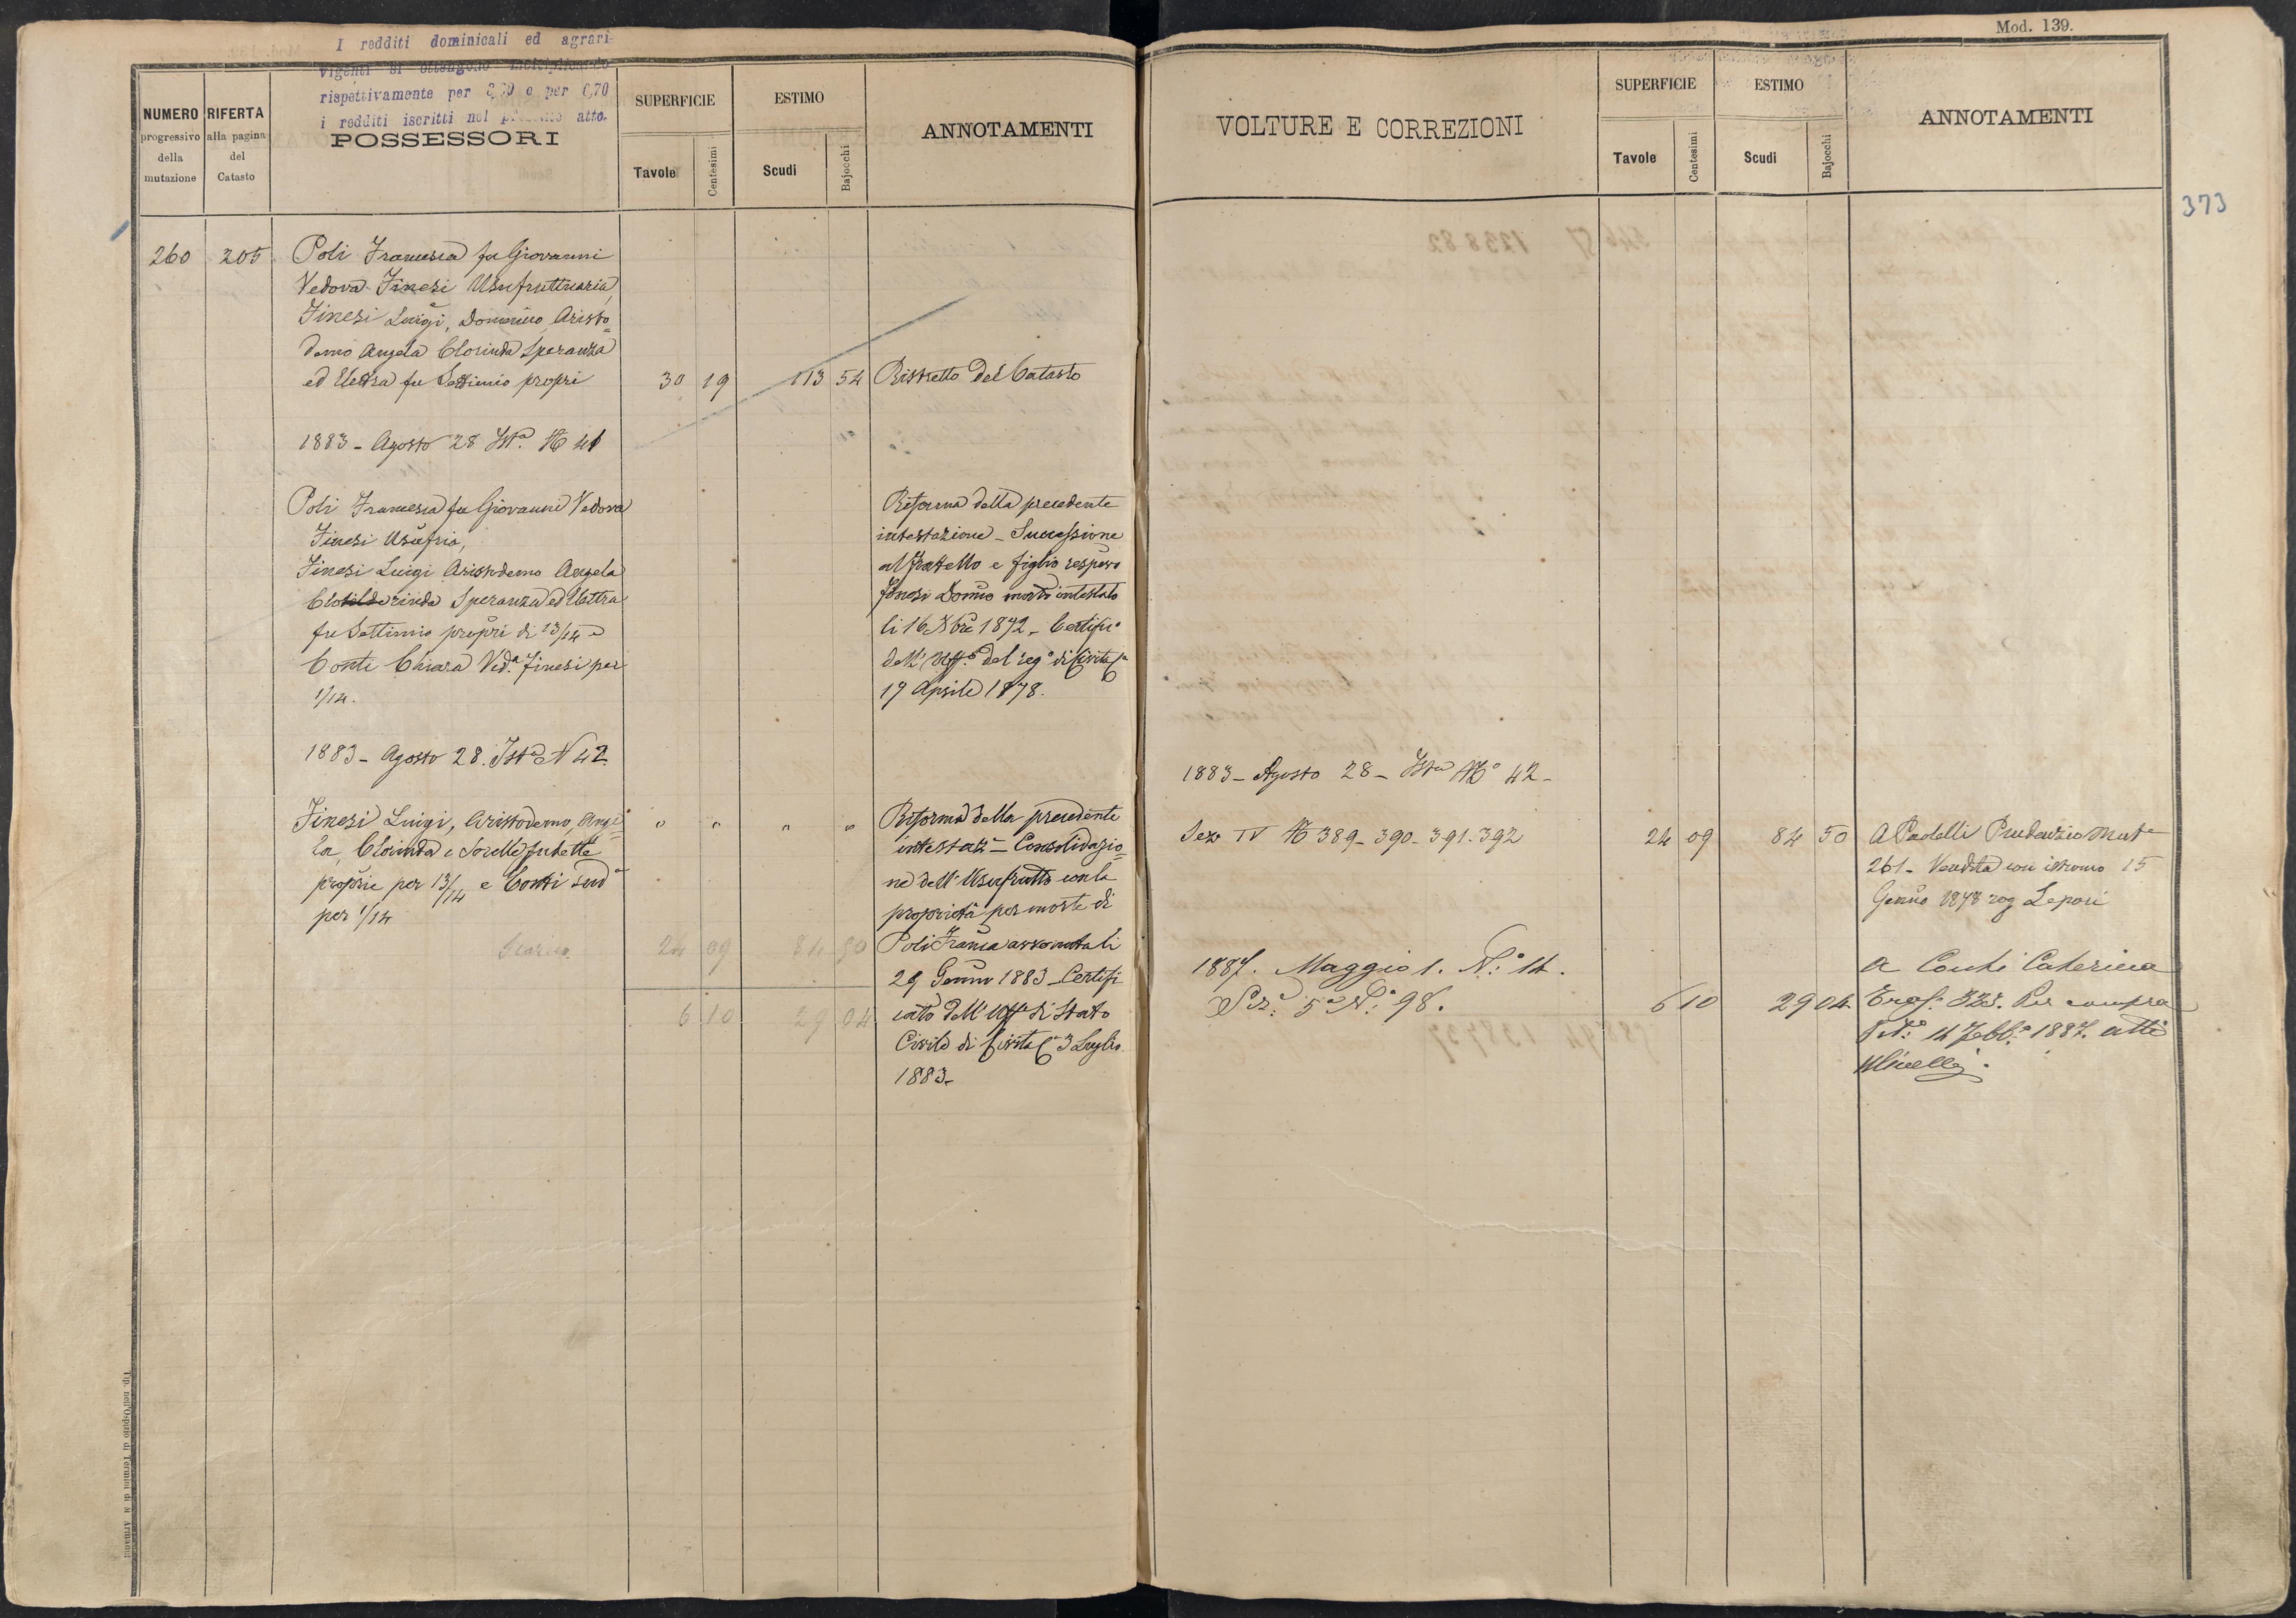 I redditi dominicali ed agrari
vigenti si ottengono moltiplicando
rispettivamente per e per 6,70
i redditi iscritti nel presente atto.
NUMERO
progressivo
della
mutazione
RIFERTA
alla pagina
del
Catasto
POSSESSORI
SUPERFICIE
Tavole
Centesimi
ESTIMO
Scudi
Bajocchi
ANNOTAMENTI
260 205 Poli Francesca fu Giovanni
Vedova Finesi Usufruttuaria,
Finesi Luigi, Domenico, Aristo=
demo Angela Clorinda Speranza
ed Elettra fu Settimio propri 30 19 113 54 Ristretto del Catasto
1883 - Agosto 28 Ist.ª N 41
Poli Francesca fu Giovanni Vedova
Finesi Usufria,
Finesi Luigi Aristodemo Angela
Clotilde rinda Speranza ed Elettra
fu Settimio propri di 13/14 e
Conti Chiara Ved.ª Finesi per
1/14.
Riforma della precedente
intestazione - Successione
al fratello e figlio respvo
Finesi Domco morto intestato
li 16 Xbre 1872 - Certifico
dell' Uff.o del reg.o di Civita Ca
19 Aprile 1878.
1883 - Agosto 28. Ista N 42
Finesi Luigi, Aristodemo, Ange=
la, Clorinda e Sorelle sudette
proprie per 13/14 e Conti sud.a
per 1/14
" " " "
Scarico 24 09 84 50
6 10 29 04
Riforma della precedente
intestaz.e - Consolidazio=
ne dell' Usufrutto con la
proprietà per morte di
Poli Franca avvenuta li
29 Gennro 1883 - Certifi
cato dell' Uff.o di Stato
Civile di Civita Ca 3 Luglio
1883 -
Tip. nell'Ospizio di Termini di N Armanni
Mod. 139.
VOLTURE E CORREZIONI
SUPERFICIE
Tavole
Centesimi
ESTIMO
Scudi
Bajocchi
ANNOTAMENTI
373
1883 - Agosto 28 - Ista No 42 -
Sez IV N 389 - 390 - 391 - 392 24 09 84 50 A Padelli Prudenzio Mute
261 - Vendita con istromo 15
Gennro 1878 rog Lepori
1887. Maggio 1. N.o 14.
Sez. 5a N.o 98. 6 10 29 04
A Conti Caterina
Per compra
14 Febb.o 1887. atti